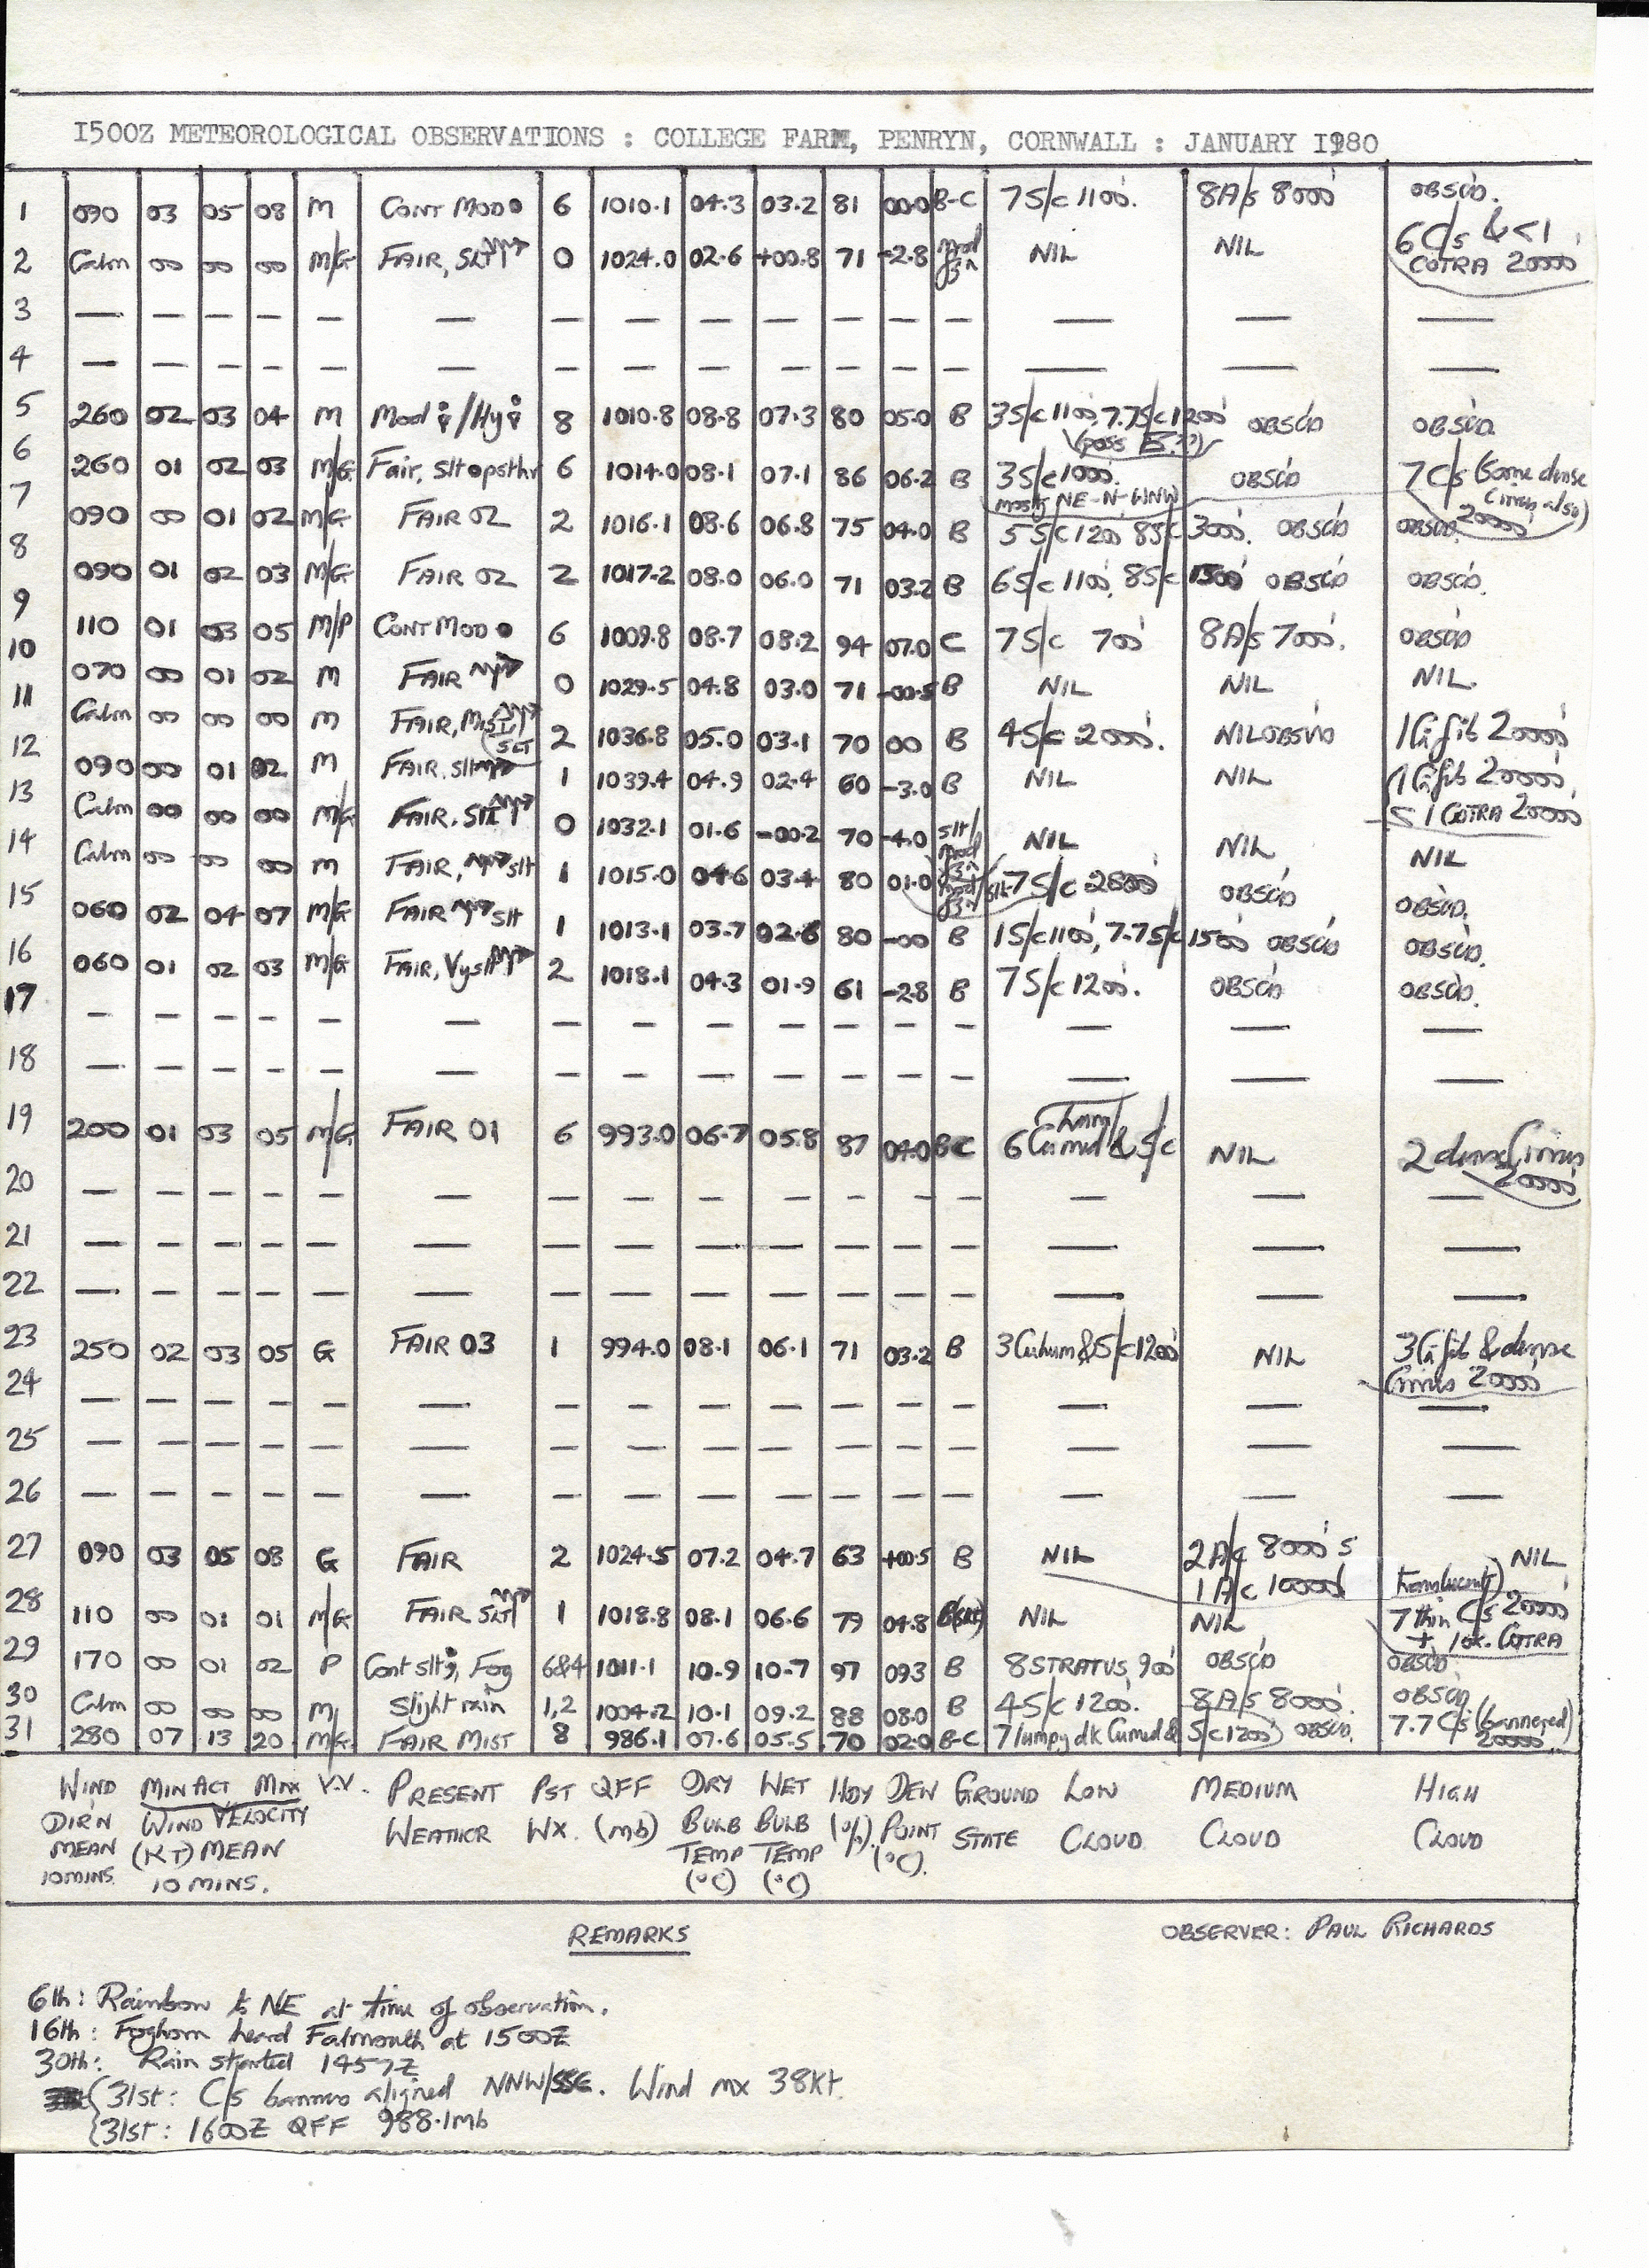 1500Z METEOROLOGICAL OBSERVATIONS : COLLEGE FARM, PENRYN, CORNWALL : JANUARY 1980
1 090 03 05 08 M CONT MOD ● 6 1010.1 04.3 03.2 81 00.0 B-C 7 S/c 1100'. 8 A/s 8000' OBSC'D.
2 Calm 00 00 00 M/G FAIR, SLT 0 1024.0 02.6 +00.8 71 -2.8 mod fzn NIL NIL 6 C/s & <1 COTRA 20000'
3 — — — — — — — — — — — — — — — —
4 — — — — — — — — — — — — — — — —
5 260 02 03 04 M Mod / Hy 8 1010.8 08.8 07.3 80 05.0 B 3 S/c 1100', 7.7 S/c 1200' (poss ) OBSC'D OBSC'D.
6 260 01 02 03 M/G Fair, slt 6 1014.0 08.1 07.1 86 06.2 B 3 S/c 1000'. mostly NE-N-WNW OBSC'D 7 C/s (some dense Cirrus also) 20000'
7 090 00 01 02 M/G FAIR 02 2 1016.1 08.6 06.8 75 04.0 B 5 S/c 1200' 8 S/c 3000'. OBSC'D OBSC'D.
8 090 01 02 03 M/G FAIR 02 2 1017.2 08.0 06.0 71 03.2 B 6 S/c 1100', 8 S/c 1500' OBSC'D OBSC'D.
9 110 01 03 05 M/P CONT MOD ● 6 1009.8 08.7 08.2 94 07.0 C 7 S/c 700' 8 A/s 7000'. OBSC'D
10 070 00 01 02 M FAIR 0 1029.5 04.8 03.0 71 -00.5 B NIL NIL NIL.
11 Calm 00 00 00 M FAIR, MIST (SLT 2 1036.8 05.0 03.1 70 00 B 4 S/c 2000'. NIL OBSV'D 1 Ci fib 20000'
12 090 00 01 02 M FAIR, slt 1 1039.4 04.9 02.4 60 -3.0 B NIL NIL 1 Ci fib 20000', <1 COTRA 20000'
13 Calm 00 00 00 M/G FAIR, SLT 0 1032.1 01.6 -00.2 70 -4.0 slt/mod fzn NIL NIL NIL
14 Calm 00 00 00 M FAIR, slt 1 1015.0 04.6 03.4 80 01.0 7 S/c 2800' OBSC'D OBSC'D.
15 060 02 04 07 M/G FAIR slt 1 1013.1 03.7 02.8 80 -00 B 1 S/c 1100', 7.7 S/c 1500' OBSC'D OBSC'D.
16 060 01 02 03 M/G FAIR, Vyslt 2 1018.1 04.3 01.9 61 -2.8 B 7 S/c 1200'. OBSC'D OBSC'D.
17 — — — — — — — — — — — — — — — —
18 — — — — — — — — — — — — — — — —
19 200 01 03 05 M/G FAIR 01 6 993.0 06.7 05.8 87 04.0 B-C 6 Cu med & S/c NIL 2 dense Cirrus 20000'
20 — — — — — — — — — — — — — — — —
21 — — — — — — — — — — — — — — — —
22 — — — — — — — — — — — — — — — —
23 250 02 03 05 G FAIR 03 1 994.0 08.1 06.1 71 03.2 B 3 Cu hum & S/c 1200' NIL 3 Ci fib & dense Cirrus 20000'
24 — — — — — — — — — — — — — — — —
25 — — — — — — — — — — — — — — — —
26 — — — — — — — — — — — — — — — —
27 090 03 05 08 G FAIR 2 1024.5 07.2 04.7 63 +00.5 B NIL 2 A/c 8000's 1 A/c 10000' NIL
28 110 00 01 01 M/G FAIR SLT 1 1018.8 08.1 06.6 79 04.8 B(slt) NIL NIL 7 thin (translucent) C/s 20000' + 1 ok. COTRA
29 170 00 01 02 P Cont slt, Fog 6&4 1011.1 10.9 10.7 97 093 B 8 STRATUS 900' OBSC'D OBSC'D
30 Calm 00 00 00 M Slight rain 1,2 1004.2 10.1 09.2 88 08.0 B 4 S/c 1200'. 8 A/s 8000'. OBSC'D
31 280 07 13 20 M/G FAIR MIST 8 986.1 07.6 05.5 70 02.0 B-C 7 lumpy dk Cu med & S/c 1200' OBSC'D. 7.7 C/s (bannered) 20000'
WIND MIN ACT MAX V.V. PRESENT PST QFF DRY WET HDY DEW GROUND LOW MEDIUM HIGH
DIR'N WIND VELOCITY WEATHER WX. (mb) BULB BULB (%). POINT STATE CLOUD CLOUD CLOUD
MEAN (KT) MEAN TEMP TEMP (°C).
10 MINS. 10 MINS. (°C) (°C)
REMARKS OBSERVER: PAUL RICHARDS
6th: Rainbow to NE at time of observation.
16th: Foghorn heard Falmouth at 1500Z
30th: Rain started 1457Z
31st: C/s banners aligned NNW/SSE. Wind mx 38kt.
31st: 1600Z QFF 988.1mb